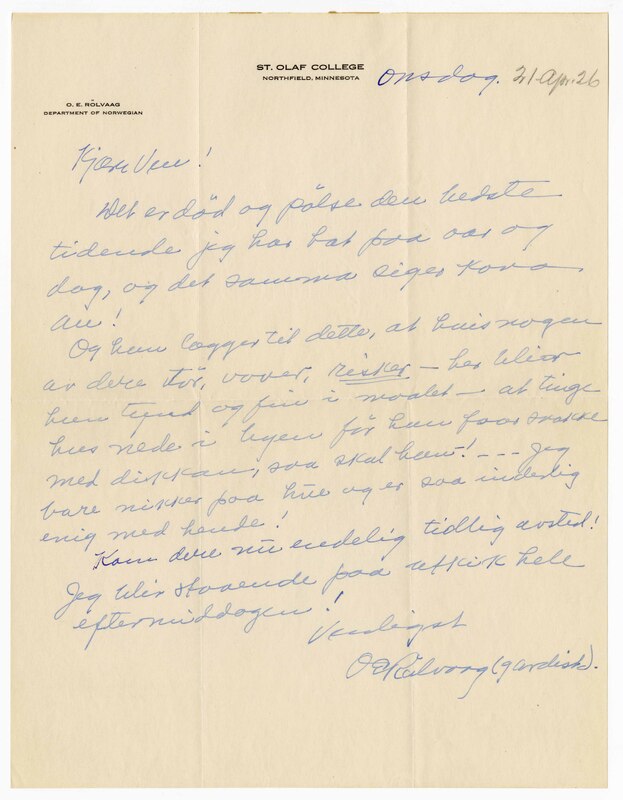 ST. OLAF COLLEGE
NORTHFIELD, MINNESOTA
Onsdag. 21-Apr. 26
O. E. RÖLVAAG
DEPARTMENT OF NORWEGIAN
Kjære Ven!
Det er död og pölse den bedste
tidende jeg har hat paa aar og
dag, og det samma siger Kona
Og hun lægger til dette, at hvis nogen
av dere tör, vover, risker – her blir
hun tynd og fin i maalet – at tinge
hus nede i byen för hun faar snakke
med dikkan, saa skal hun! – – – Jeg
bare nikker paa hue og er saa inderlig
enig med hende!
Kom dere nu endelig tidlig avsted!
Jeg blir staaende paa utkik hele
eftermiddagen!
Venligst
O E Rölvaag (gardist).